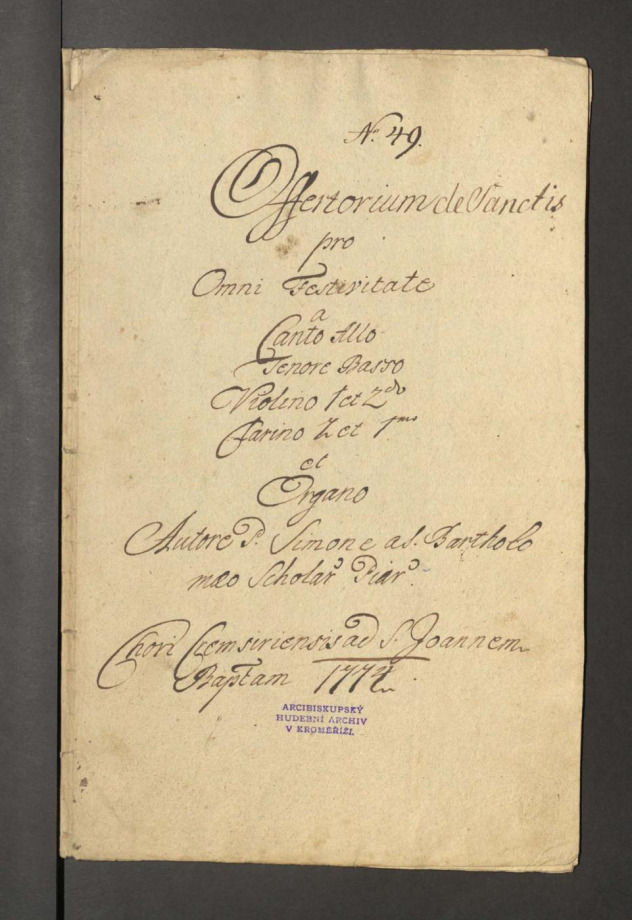 N. 49.
Offertorium de Sanctis
pro
Omni Festivitate
a
Canto Alto
Tenore Basso
Violino 1 et 2do
Clarino 2 et 1mo
et
Organo
Autore P. Simone a S. Bartholo
mæo Scholar Piar
Chori Cremsiriensis ad S. Joannem
Baptam 1774
ARCIBISKUPSKÝ
HUDEBNÍ ARCHIV
V KROMĚŘÍŽI.